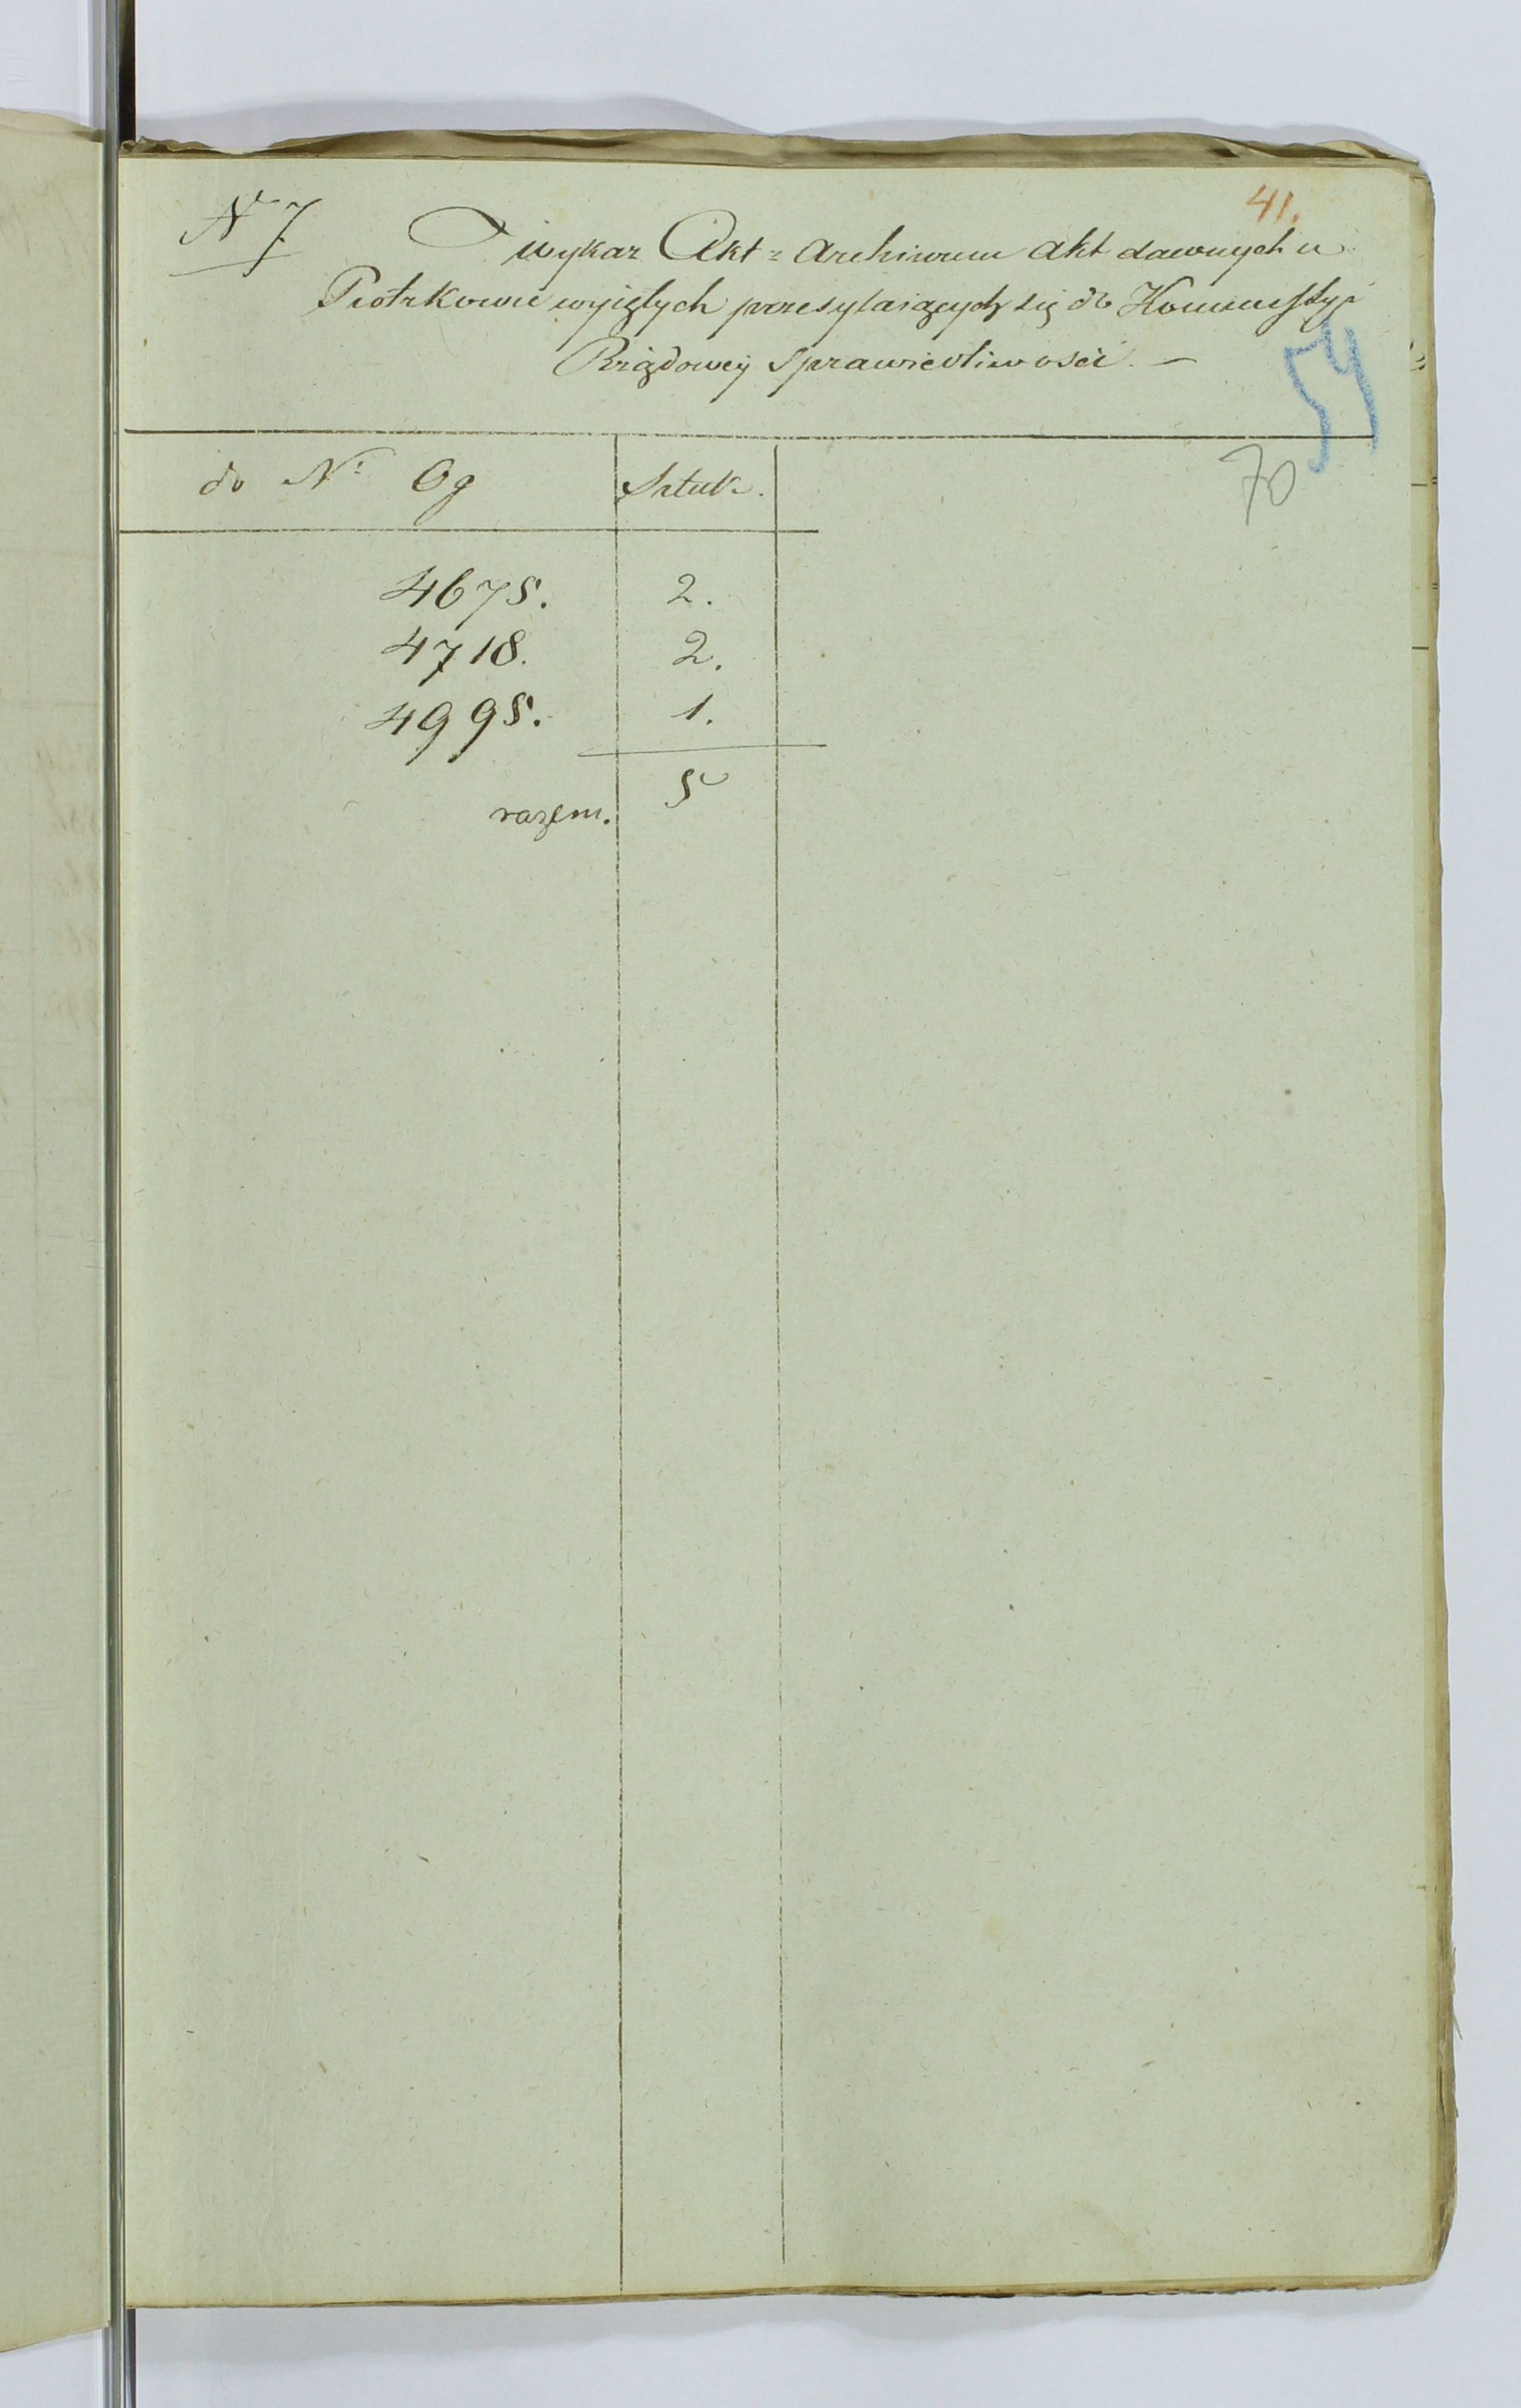 41.
N 7
Wykaz Akt z Archiwum Akt dawnych w
Piotrkowie wyiętych przesyłaiących się do Kommissyi
Rządowey Sprawiedliwości. —
54
70
do Nº Og Sztuk.
4675. 2.
4718. 2.
4995. 1.
razem. 5